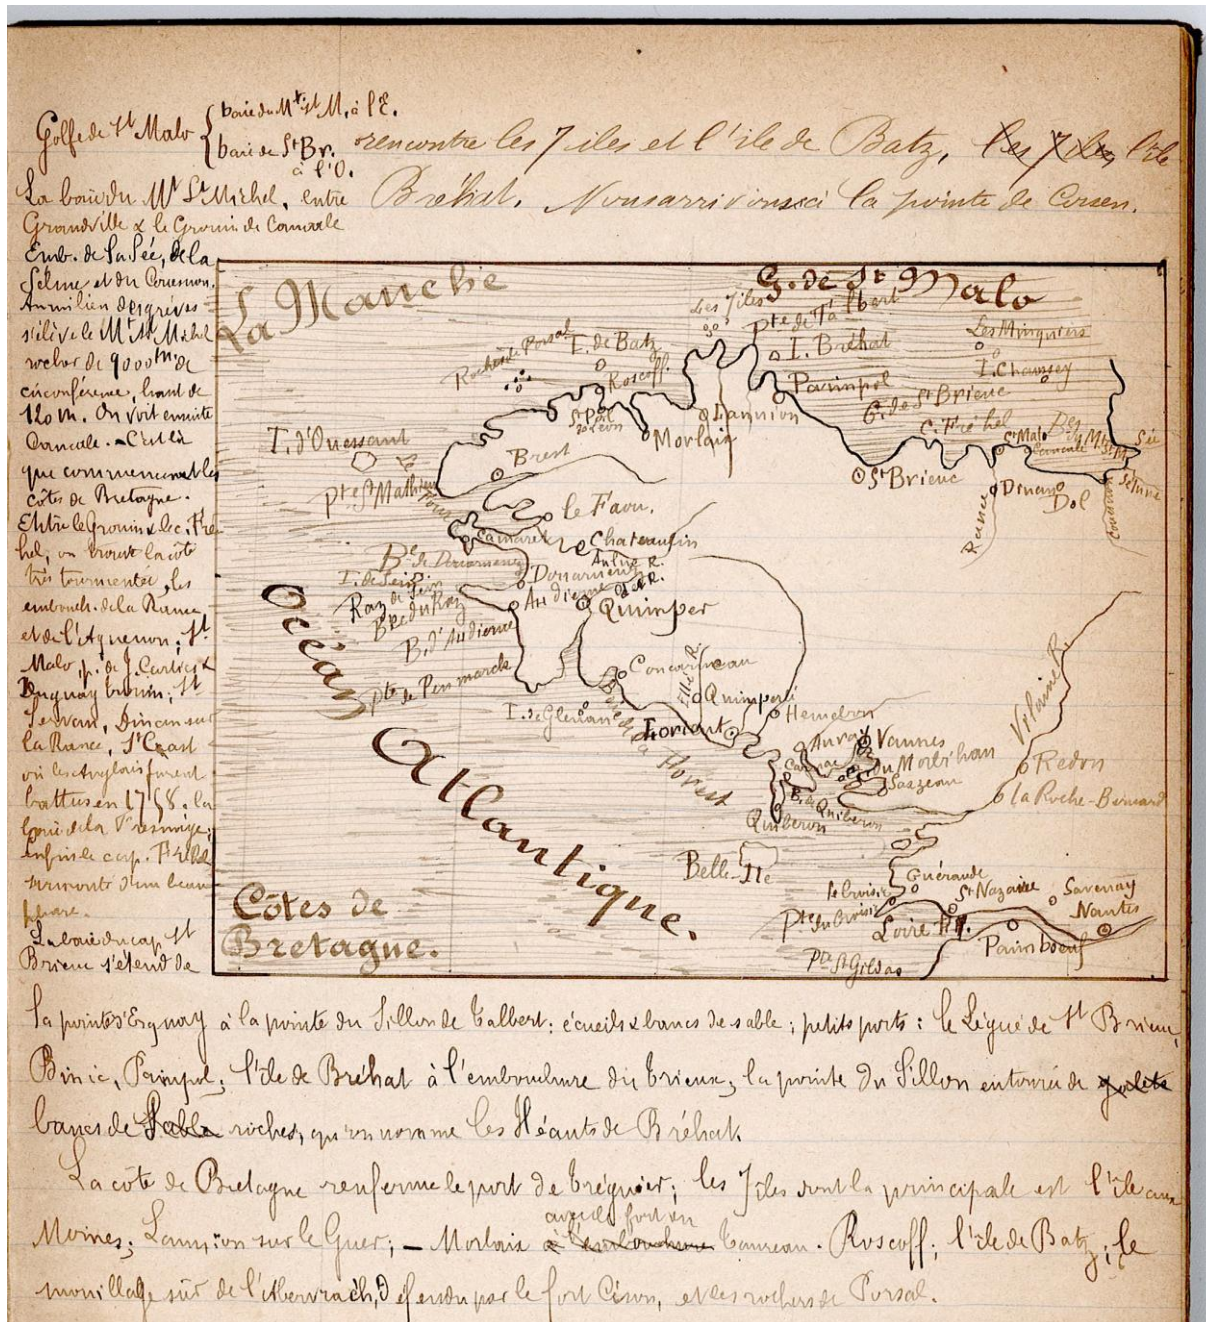 Golfe de St Malo { baie du Mt St M. à l'E.
baie de St Br. à l'O.
rencontre les 7 iles et l'ile de Batz, les 7 iles l'ile
Bréhat. Nous arrivons à la pointe de Corsen.
La baie du Mt St Michel, entre
Grandville & le Grouin de Cancale
Emb. de la Sée, de la
Sélune et du Couesnon.
Au milieu des grèves
s'élève le Mt St Michel
rocher de 9000m. de
circonférence, haut de
120 m. On voit ensuite
Cancale. C'est là
que commencent les
côtes de Bretagne.
Entre le Grouin & le c. Fré-
hel, on trouve la côte
très tourmentée, les
embouch. de la Rance,
et de l'Arguenon; St
Malo, p. de J. Cartier &
Duguay Trouin; St
Servan, Dinan sur
la Rance, St Cast
où les Anglais furent
battus en 1758. la
baie de la Fresnaye;
enfin le cap. Fréhel
surmonté d'un beau
phare.
La baie du cap St
Brieuc s'étend de
La Manche
G. de St Malo
Les 7 iles
Pte de Talbert
Roches de Porsal
I. de Batz
Roscoff.
I. Bréhat
Les Minquiers
I. Chausey
Paimpol
G. de St Brieuc
C. Fréhel
St Pol de Léon
Lannion
Morlaix
St Malo
Cancale
Sée
Sélune
I. d'Ouessant
Brest
Pte St Mathieu
St Brieuc
Dinan
Dol
Rance
Couesnon
le Faou.
Camaret
Chateaulin
Aulne R.
Be de Douarnenez
Douarnenez
I. de Sein
Raz de Sein
Be du Raz
Audierne
Odet R.
Quimper
B. d'Audierne
Pte de Penmarck
Concarneau
Ellé R.
Quimperlé
I. de Glenan
Baie de la Forest
Lorient
Hennebon
Auray
Vannes
Carnac
du Morbihan
Sarzeau
B. de Quiberon
Quiberon
Vilaine R.
Redon
la Roche-Bernard
Océan Atlantique.
Belle-Ile
Guérande
le Croisic
Pte du Croisic
St Nazaire
Savenay
Nantes
Loire R.
Paimboeuf
Pte St Gildas
Côtes de
Bretagne.
la pointe d'Erquay à la pointe du Sillon de Talbert; écueils & bancs de sable; petits ports: le Légué de St Brieuc,
Binic, Paimpol; l'île de Bréhat à l'embouchure du Trieux; la pointe du Sillon entourée de galets
bancs de sable roches, qu'on nomme les Héants de Bréhat.
La côte de Bretagne renferme le port de Tréguier; les 7 iles dont la principale est l'île aux
Moines; Lannion sur le Guer; – Morlaix à l'embouchure avec le fort du Taureau. Roscoff; l'île de Batz; le
mouillage sûr de l'Aberrach, défendu par le fort Cézon, et les rochers de Porsal.